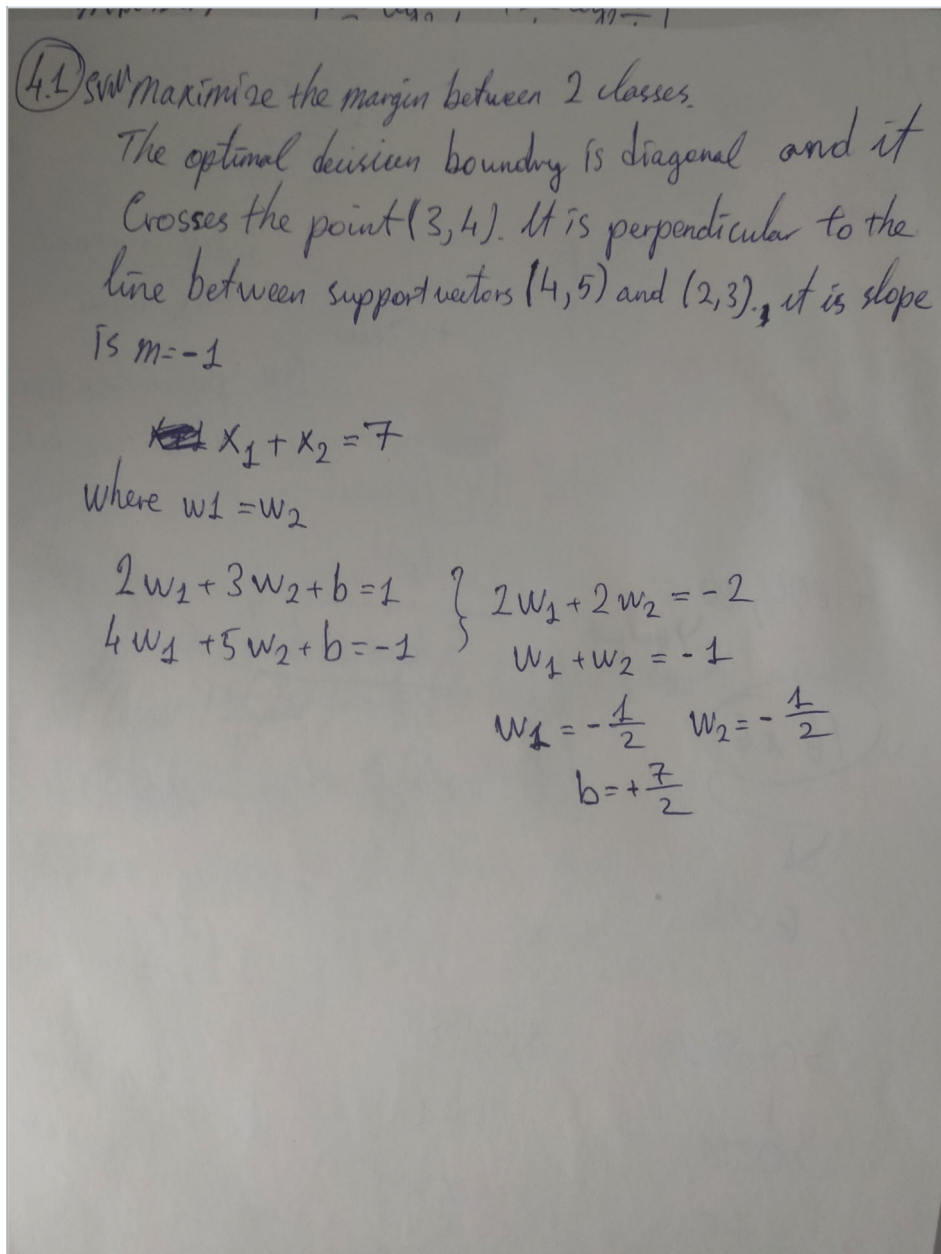 4.1 SVM maximize the margin between 2 classes.
The optimal decision boundry is diagonal and it
Crosses the point (3,4). It is perpendicular to the
line between support vectors (4,5) and (2,3)., it is slope
is m=-1
x1 + x2 = 7
where w1 = w2
2w1 + 3w2 + b = 1
4w1 + 5w2 + b = -1
2w1 + 2w2 = -2
w1 + w2 = -1
w1 = -1/2 w2 = -1/2
b = +7/2